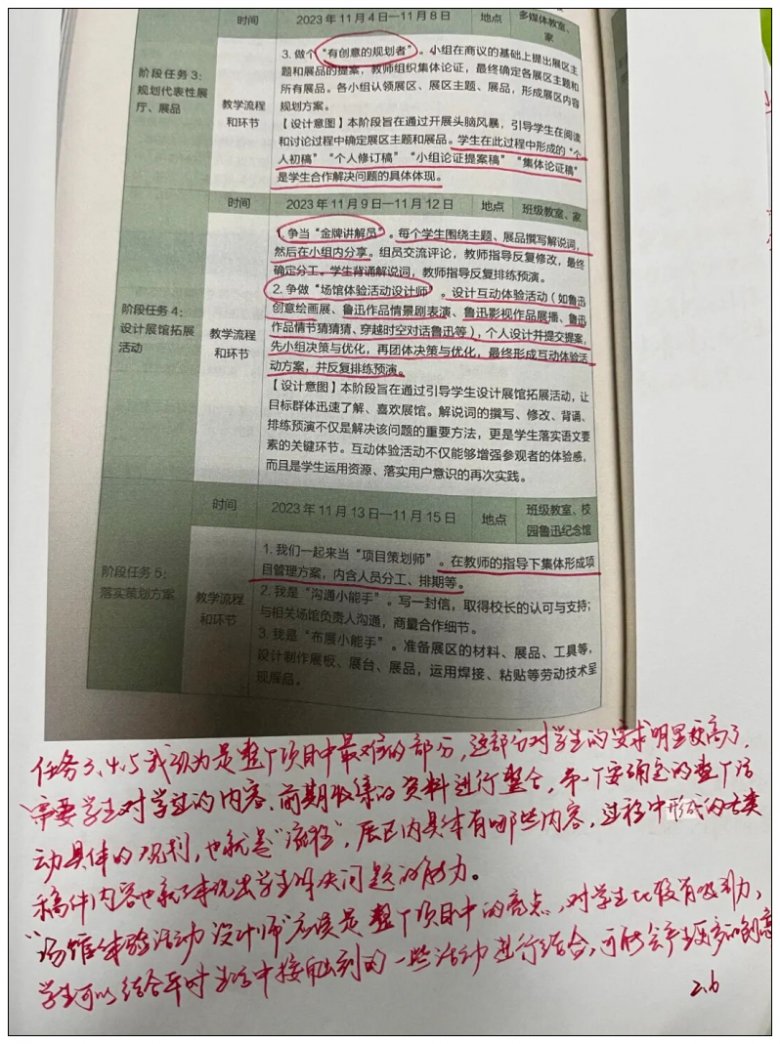 时间 2023年11月4日—11月8日 地点 多媒体教室、家
阶段任务3：规划代表性展厅、展品
教学流程和环节
3. 做个“有创意的规划者”。小组在商议的基础上提出展区主
题和展品的提案，教师组织集体论证，最终确定各展区主题和
所有展品。各小组认领展区、展区主题、展品，形成展区内容
规划方案。
【设计意图】本阶段旨在通过开展头脑风暴，引导学生在阅读
和讨论过程中确定展区主题和展品。学生在此过程中形成的“个
人初稿”“个人修订稿”“小组论证提案稿”“集体论证稿”
是学生合作解决问题的具体体现。
时间 2023年11月9日—11月12日 地点 班级教室、家
阶段任务4：设计展馆拓展活动
教学流程和环节
1. 争当“金牌讲解员”。每个学生围绕主题、展品撰写解说词，
然后在小组内分享。组员交流评论，教师指导反复修改，最终
确定分工。学生背诵解说词，教师指导反复排练预演。
2. 争做“场馆体验活动设计师”。设计互动体验活动（如鲁迅
创意绘画展、鲁迅作品情景剧表演、鲁迅影视作品展播、鲁迅
作品情节猜猜猜、穿越时空对话鲁迅等），个人设计并提交提案，
先小组决策与优化，再团体决策与优化，最终形成互动体验活
动方案，并反复排练预演。
【设计意图】本阶段旨在通过引导学生设计展馆拓展活动，让
目标群体迅速了解、喜欢展馆。解说词的撰写、修改、背诵、
排练预演不仅是解决该问题的重要方法，更是学生落实语文要
素的关键环节。互动体验活动不仅能够增强参观者的体验感，
而且是学生运用资源、落实用户意识的再次实践。
时间 2023年11月13日—11月15日 地点 班级教室、校园鲁迅纪念馆
阶段任务5：落实策划方案
教学流程和环节
1. 我们一起来当“项目策划师”。在教师的指导下集体形成项
目管理方案，内含人员分工、排期等。
2. 我是“沟通小能手”。写一封信，取得校长的认可与支持；
与相关场馆负责人沟通，商量合作细节。
3. 我是“布展小能手”。准备展区的材料、展品、工具等，
设计制作展板、展台、展品，运用焊接、粘贴等劳动技术呈
现展品。
任务3、4、5我认为是整个项目中最难的部分，这部分对学生的要求明显较高了，
需要学生对学过的内容、前期收集的资料进行整合，第一个要确定的整个活
动具体的规划，也就是“流程”，展区内具体有哪些内容，过程中形成的各类
稿件内容也就体现出学生解决问题的能力。
“场馆体验活动设计师”应该是整个项目中的亮点，对学生比较有吸引力，
学生可以结合平时生活中接触到的一些活动进行结合，可能会产生更多的创意
2.6